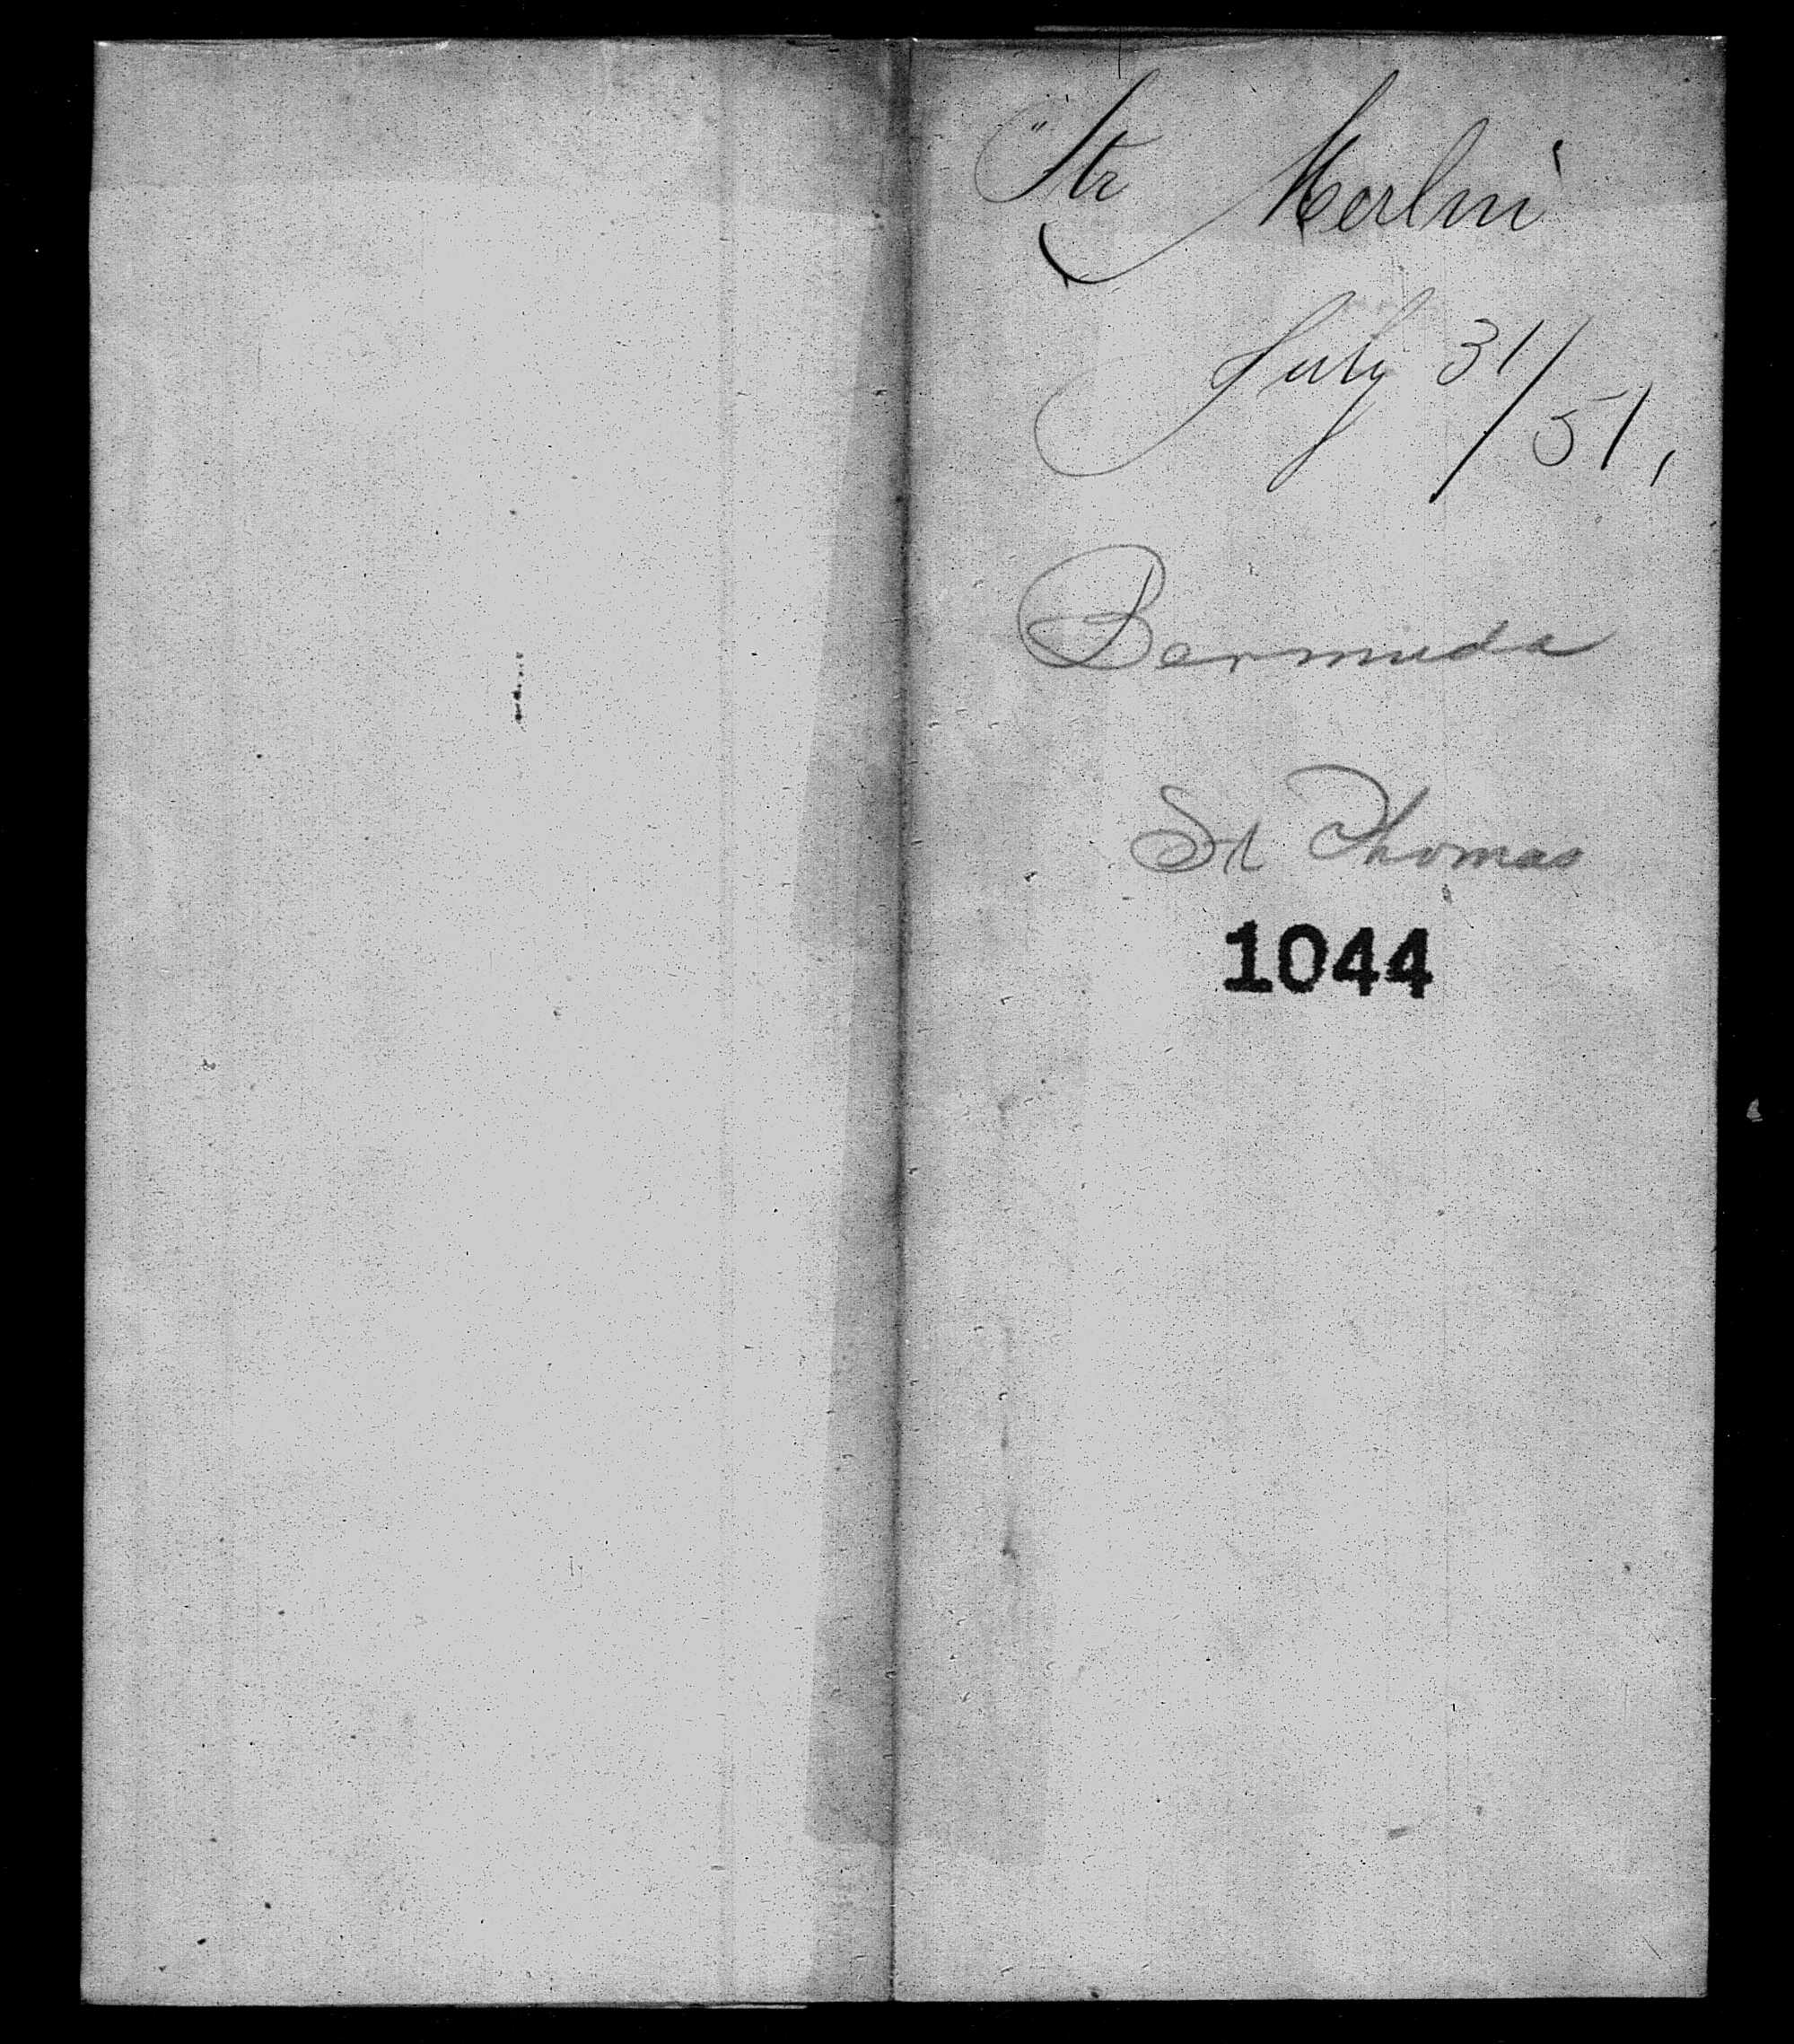 "Str Merlin"
July 31/51,
Bermuda
St Thomas
1044